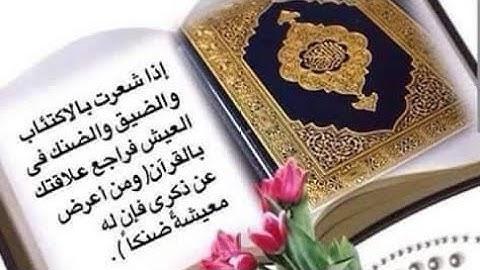 إذا شعرت بالاكتئاب
والضيق والضنك فى
العيش فراجع علاقتك
بالقرآن( ومن أعرض
عن ذكرى فإن له
معيشةً ضنكاً ).